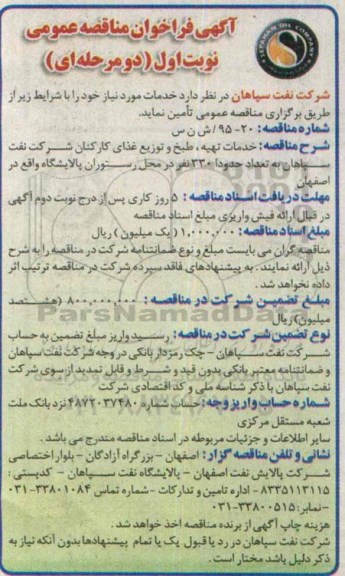 آگهی فراخوان مناقصه عمومی
نوبت اول (دو مرحله ای)
SEPAHAN OIL COMPANY
شرکت نفت سپاهان در نظر دارد خدمات مورد نیاز خود را با شرایط زیر از
طریق برگزاری مناقصه عمومی تأمین نماید.
شماره مناقصه: ۲۰-۹۵ / ش ن س
شرح مناقصه: خدمات تهیه ، طبخ و توزیع غذای کارکنان شرکت نفت
سپاهان به تعداد حدودا ۳۳۰ نفر در محل رستوران پالایشگاه واقع در
اصفهان
مهلت دریافت اسناد مناقصه : ۵ روز کاری پس از درج نوبت دوم آگهی
در قبال ارائه فیش واریزی مبلغ اسناد مناقصه
مبلغ اسناد مناقصه : ۱,۰۰۰,۰۰۰ ( یک میلیون ) ریال
مناقصه گران می بایست مبلغ و نوع ضمانتنامه شرکت در مناقصه را به شرح
ذیل ارائه نمایند . به پیشنهادهای فاقد سپرده شرکت در مناقصه ترتیب اثر
داده نخواهد شد .
مبلغ تضمین شرکت در مناقصه : ۸۰۰,۰۰۰,۰۰۰ (هشتصد
میلیون) ریال
نوع تضمین شرکت در مناقصه: رسید واریز مبلغ تضمین به حساب
شرکت نفت سپاهان – چک رمزدار بانکی در وجه شرکت نفت سپاهان
و ضمانتنامه معتبر بانکی بدون قید و شرط و قابل تمدید از سوی شرکت
نفت سپاهان با ذکر شناسه ملی و کد اقتصادی شرکت
شماره حساب واریز وجه: حساب شماره ۴۸۷۲۰۳۷۴۸۰ نزد بانک ملت
شعبه مستقل مرکزی
سایر اطلاعات و جزئیات مربوطه در اسناد مناقصه مندرج می باشد .
نشانی و تلفن مناقصه گزار: اصفهان – بزرگراه آزادگان – بلوار اختصاصی
شرکت پالایش نفت اصفهان – پالایشگاه نفت سپاهان – کدپستی :
۸۳۳۵۱۱۳۱۱۵ – اداره تامین و تدارکات – شماره تماس ۳۳۸۰۱۰۸۴-۰۳۱
– نمابر: ۳۳۸۰۰۵۱۵-۰۳۱
هزینه چاپ آگهی از برنده مناقصه اخذ خواهد شد .
شرکت نفت سپاهان در رد یا قبول یک یا تمام پیشنهادها بدون آنکه نیاز به
ذکر دلیل باشد مختار است .
ParsNamadData